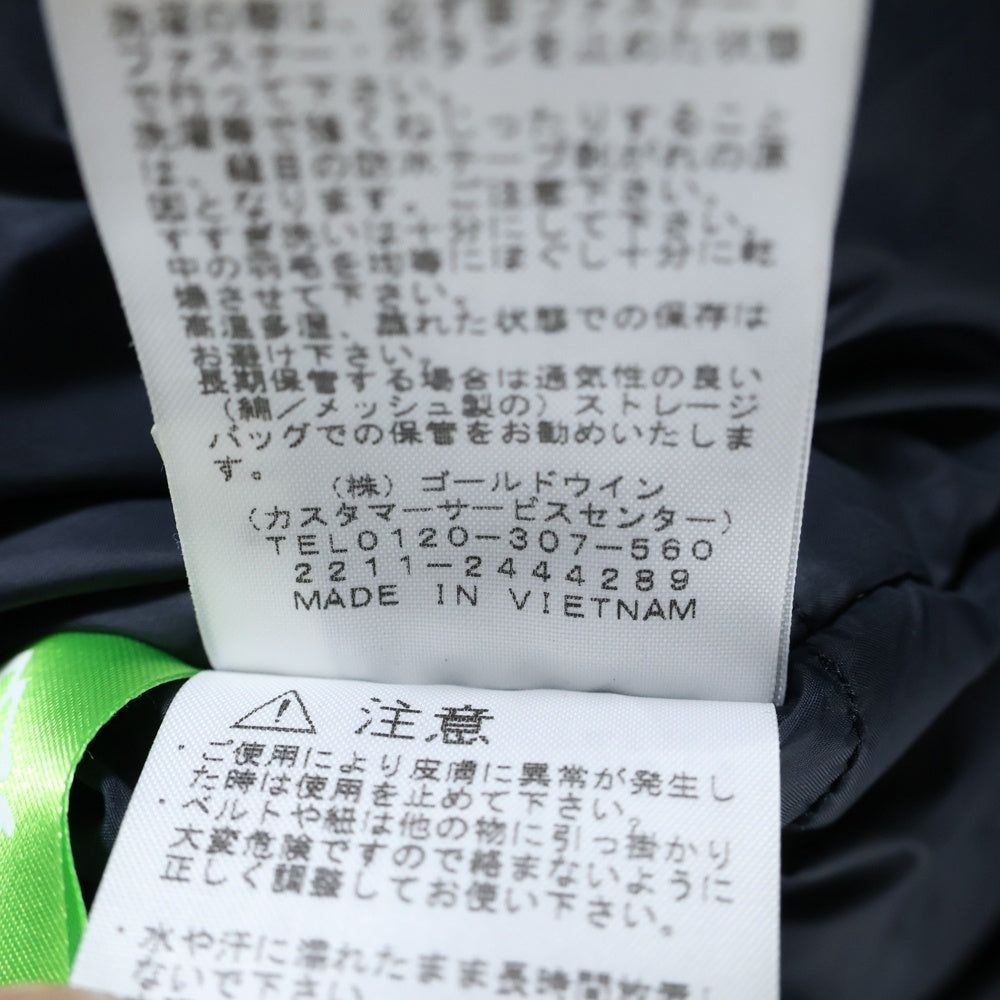 ファスナー・ボタンを止めた状態
で行って下さい。
洗濯等で強くねじったりすること
は、縫目の防水テープ剥がれの原
因となります。ご注意下さい。
すすぎ洗いは十分にして下さい。
中の羽毛を均等にほぐし十分に乾
燥させて下さい。
高温多湿、濡れた状態での保存は
お避け下さい。
長期保管する場合は通気性の良い
（綿／メッシュ製の）ストレージ
バッグでの保管をお勧めいたしま
す。
（株）ゴールドウイン
（カスタマーサービスセンター）
TEL0120-307-560
2211-2444289
MADE IN VIETNAM
注意
・ご使用により皮膚に異常が発生し
た時は使用を止めて下さい。
・ベルトや紐は他の物に引っ掛かり
大変危険ですので絡まないように
正しく調整してお使い下さい。
・水や汗に濡れたまま長時間放置し
ないで下さい。